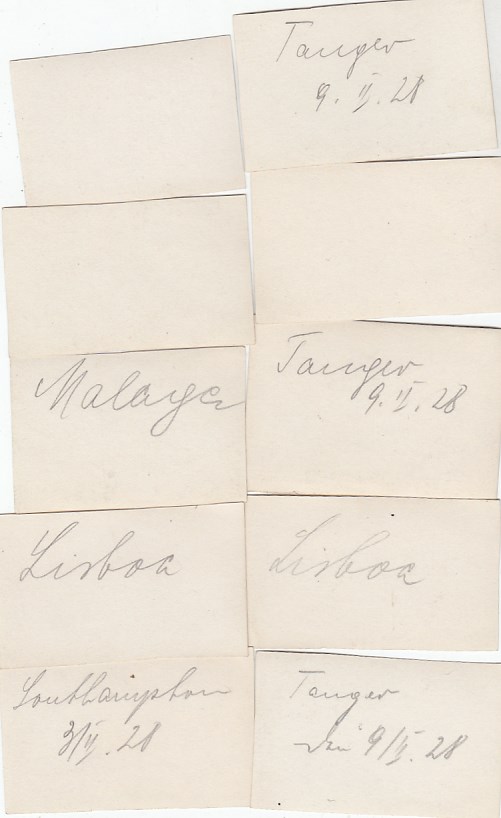 Tanger
9. II. 28
Malaga
Tanger
9. II. 28
Lisboa
Lisboa
Southampton
3/II. 28
Tanger
den 9/II. 28